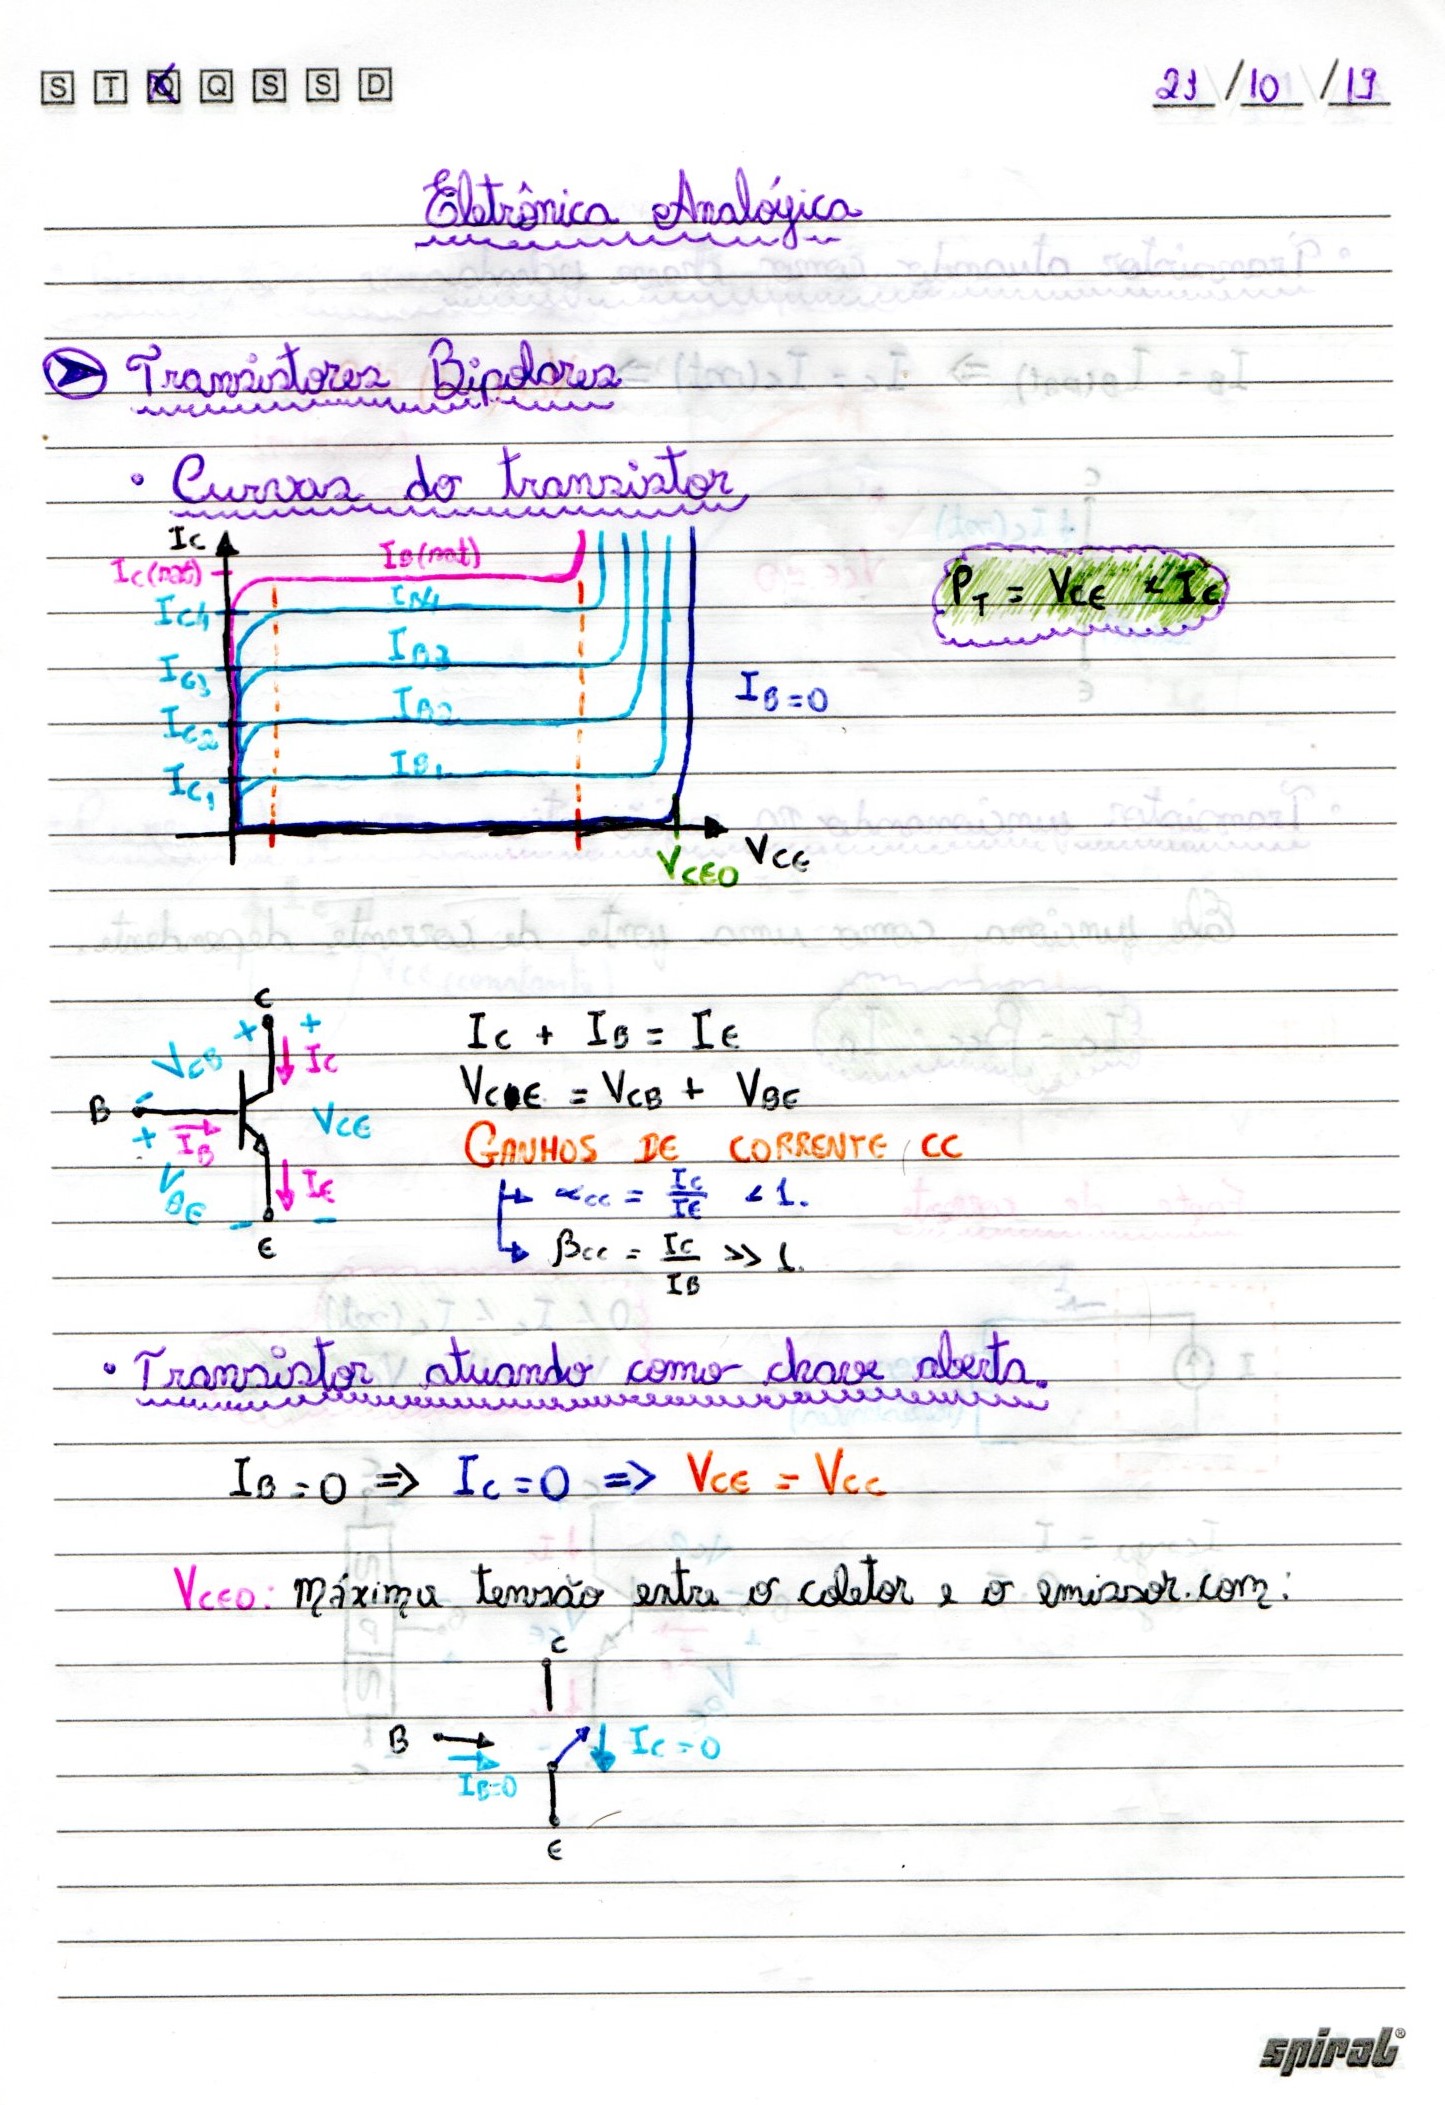 S T Q Q S S D
23/10/19
Eletrônica Analógica
Transistores Bipolares
• Curvas do transistor
IC
IC(sat) IB(sat)
IC4 IB4
PT = VCE × IC
IC3 IB3
IB=0
IC2 IB2
IC1 IB1
VCE
VCEO
C
+ +
VCB IC
IC + IB = IE
B - VCE
VCE = VCB + VBE
+ IB
GANHOS DE CORRENTE CC
VBE IE
αcc = IC/IE < 1.
- -
E
βcc = IC/IB >> 1.
• Transistor atuando como chave aberta.
IB=0 => IC=0 => VCE = VCC
VCEO: Máxima tensão entre o coletor e o emissor.com:
C
B IC=0
IB=0
E
spiral®